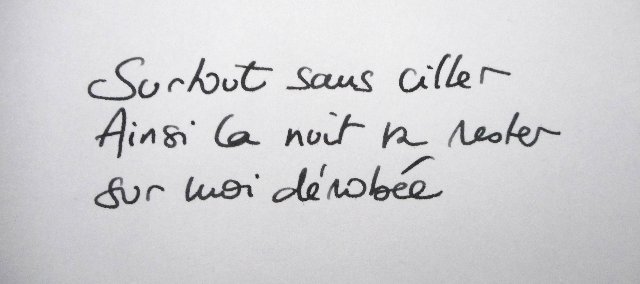 Surtout sans ciller
Ainsi la nuit va rester
sur moi dérobée